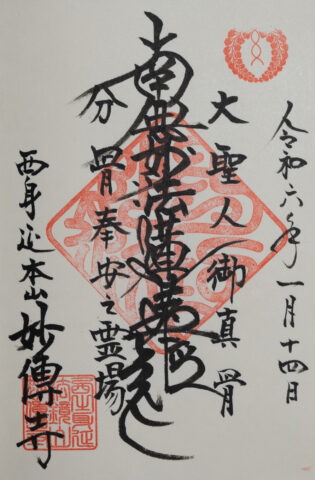 令和六年一月十四日
大聖人御真骨
南無妙法蓮華経
分骨奉安之霊場
西身延本山妙傳寺